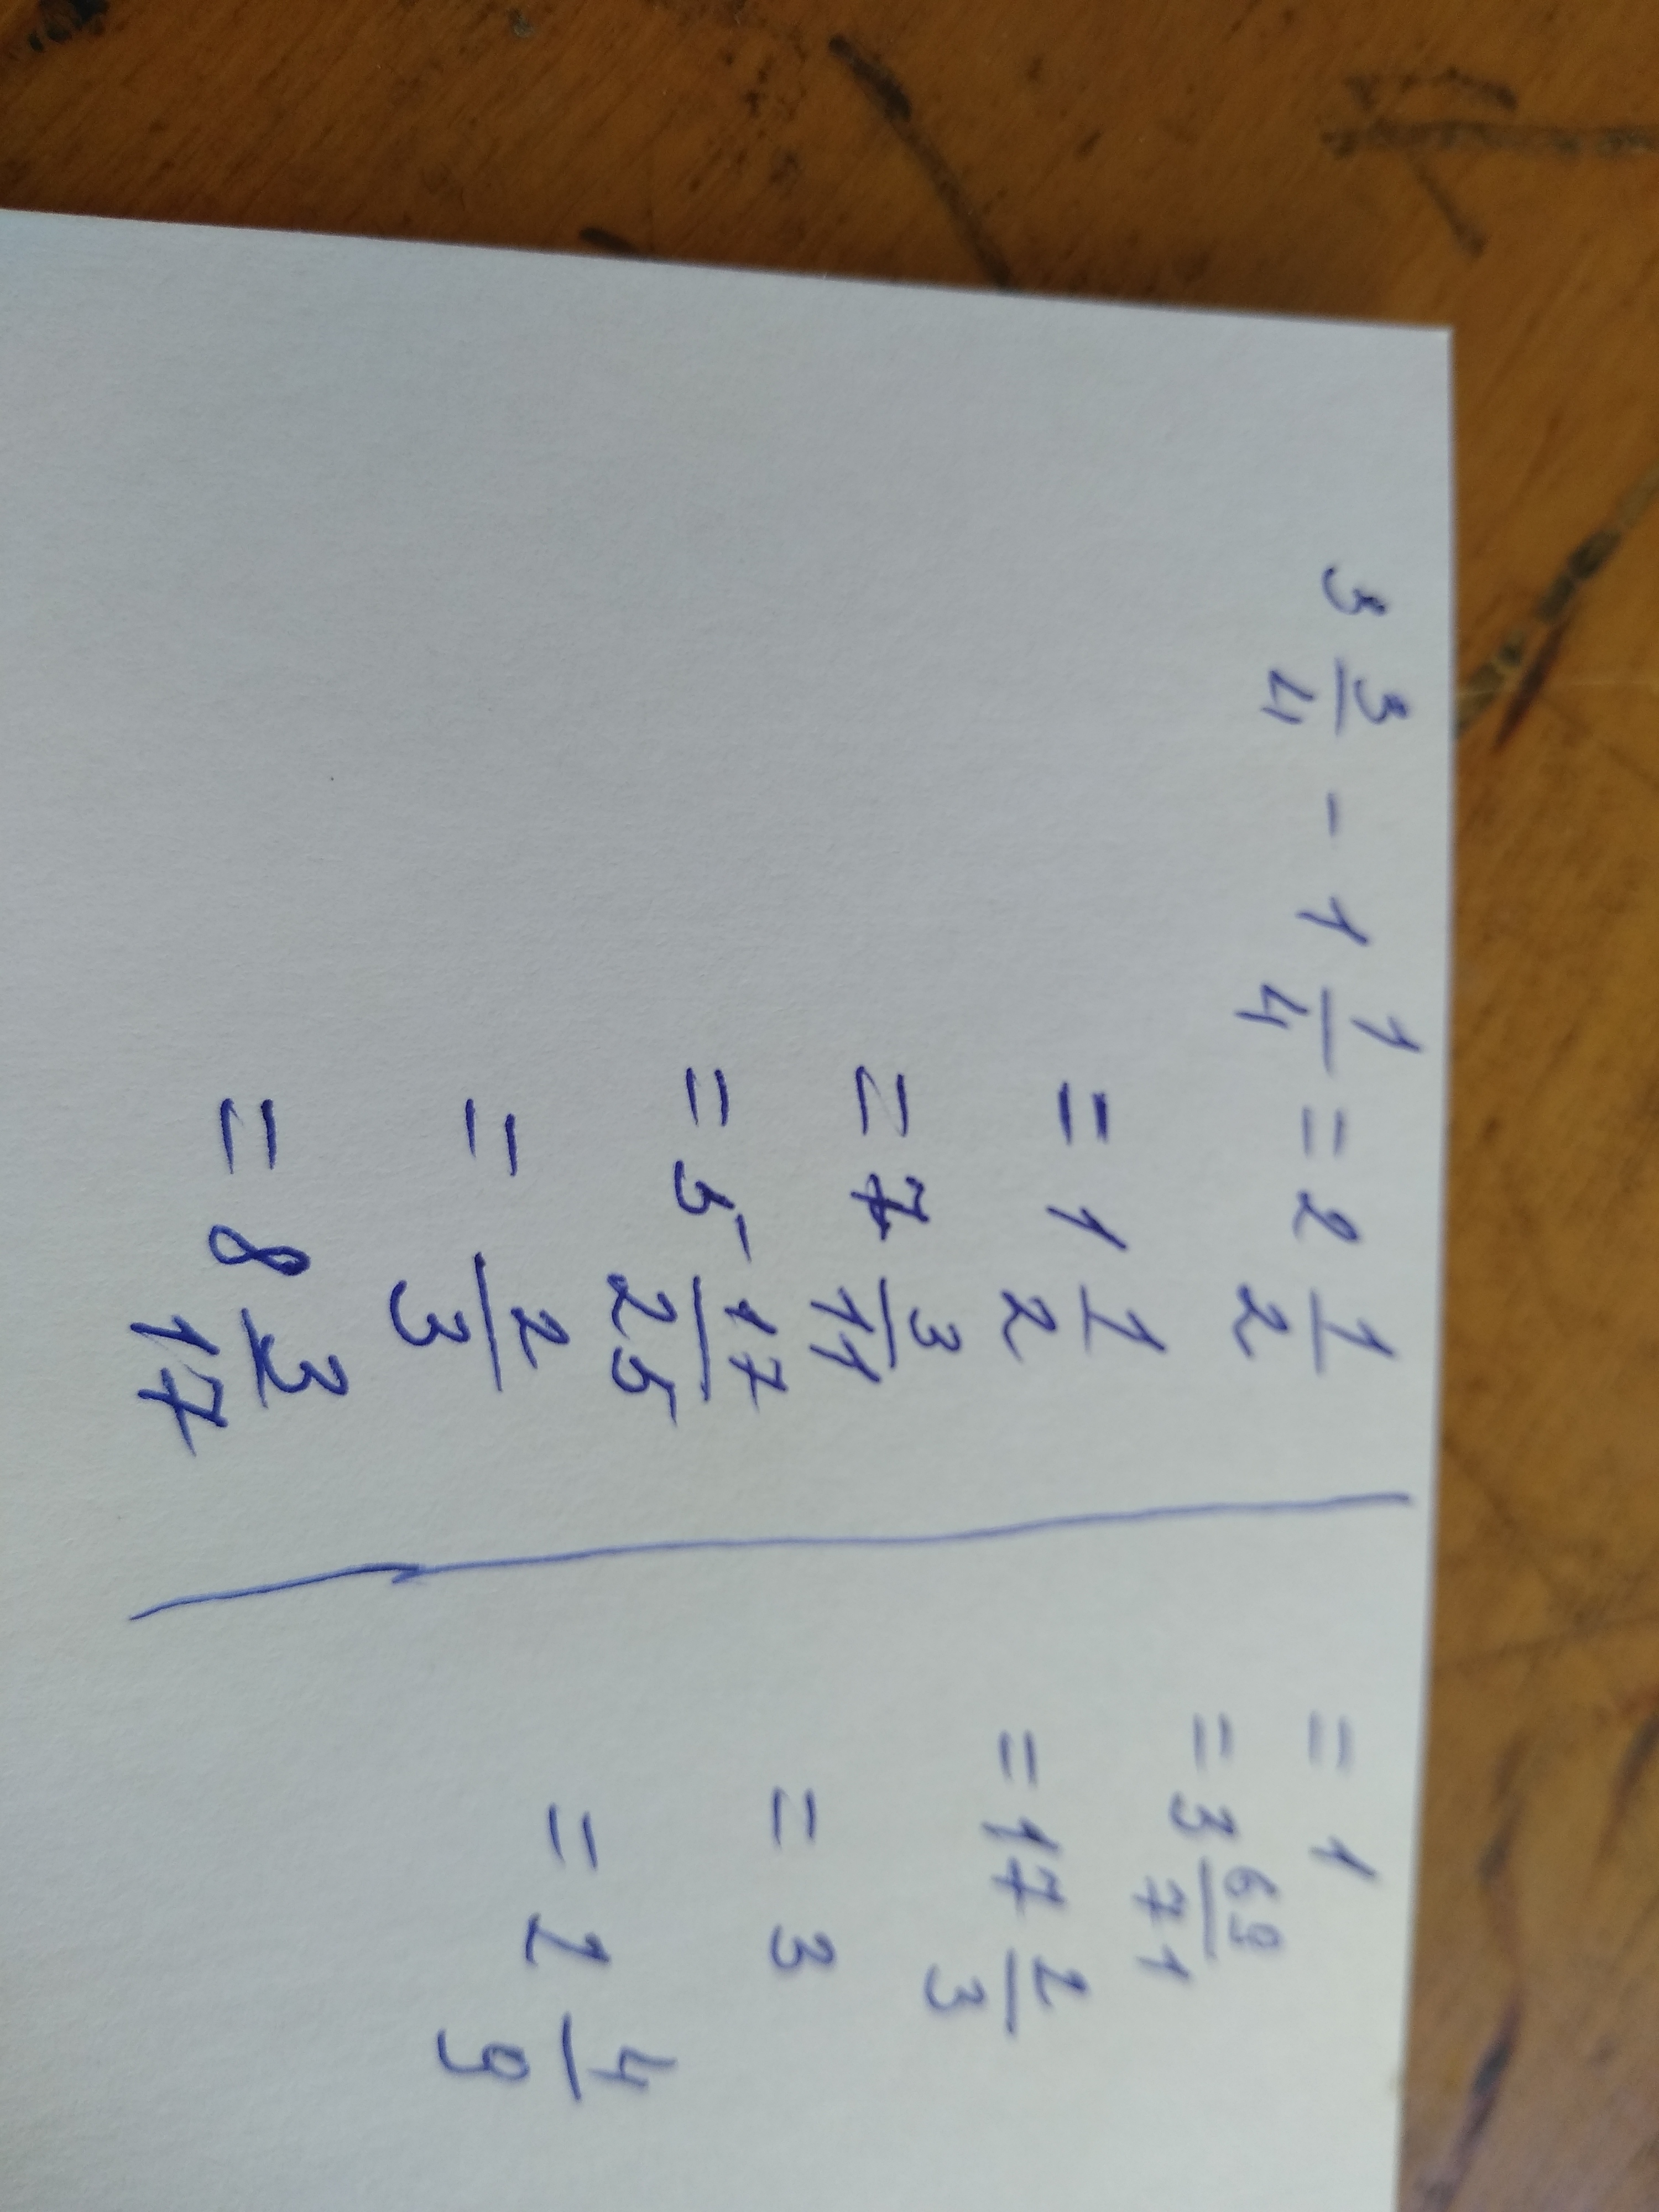 3 3/4 - 1 1/4 = 2 1/2
= 1 1/2
= 7 3/11
= 5 17/25
= 2/3
= 8 3/17
= 1
= 3 69/71
= 17 2/3
= 3
= 1 4/9